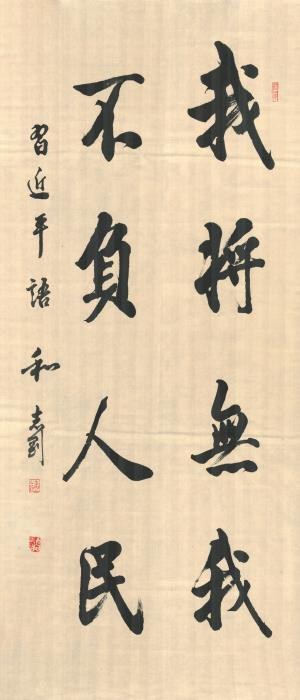 我将無我
不負人民
習近平語 和志剛